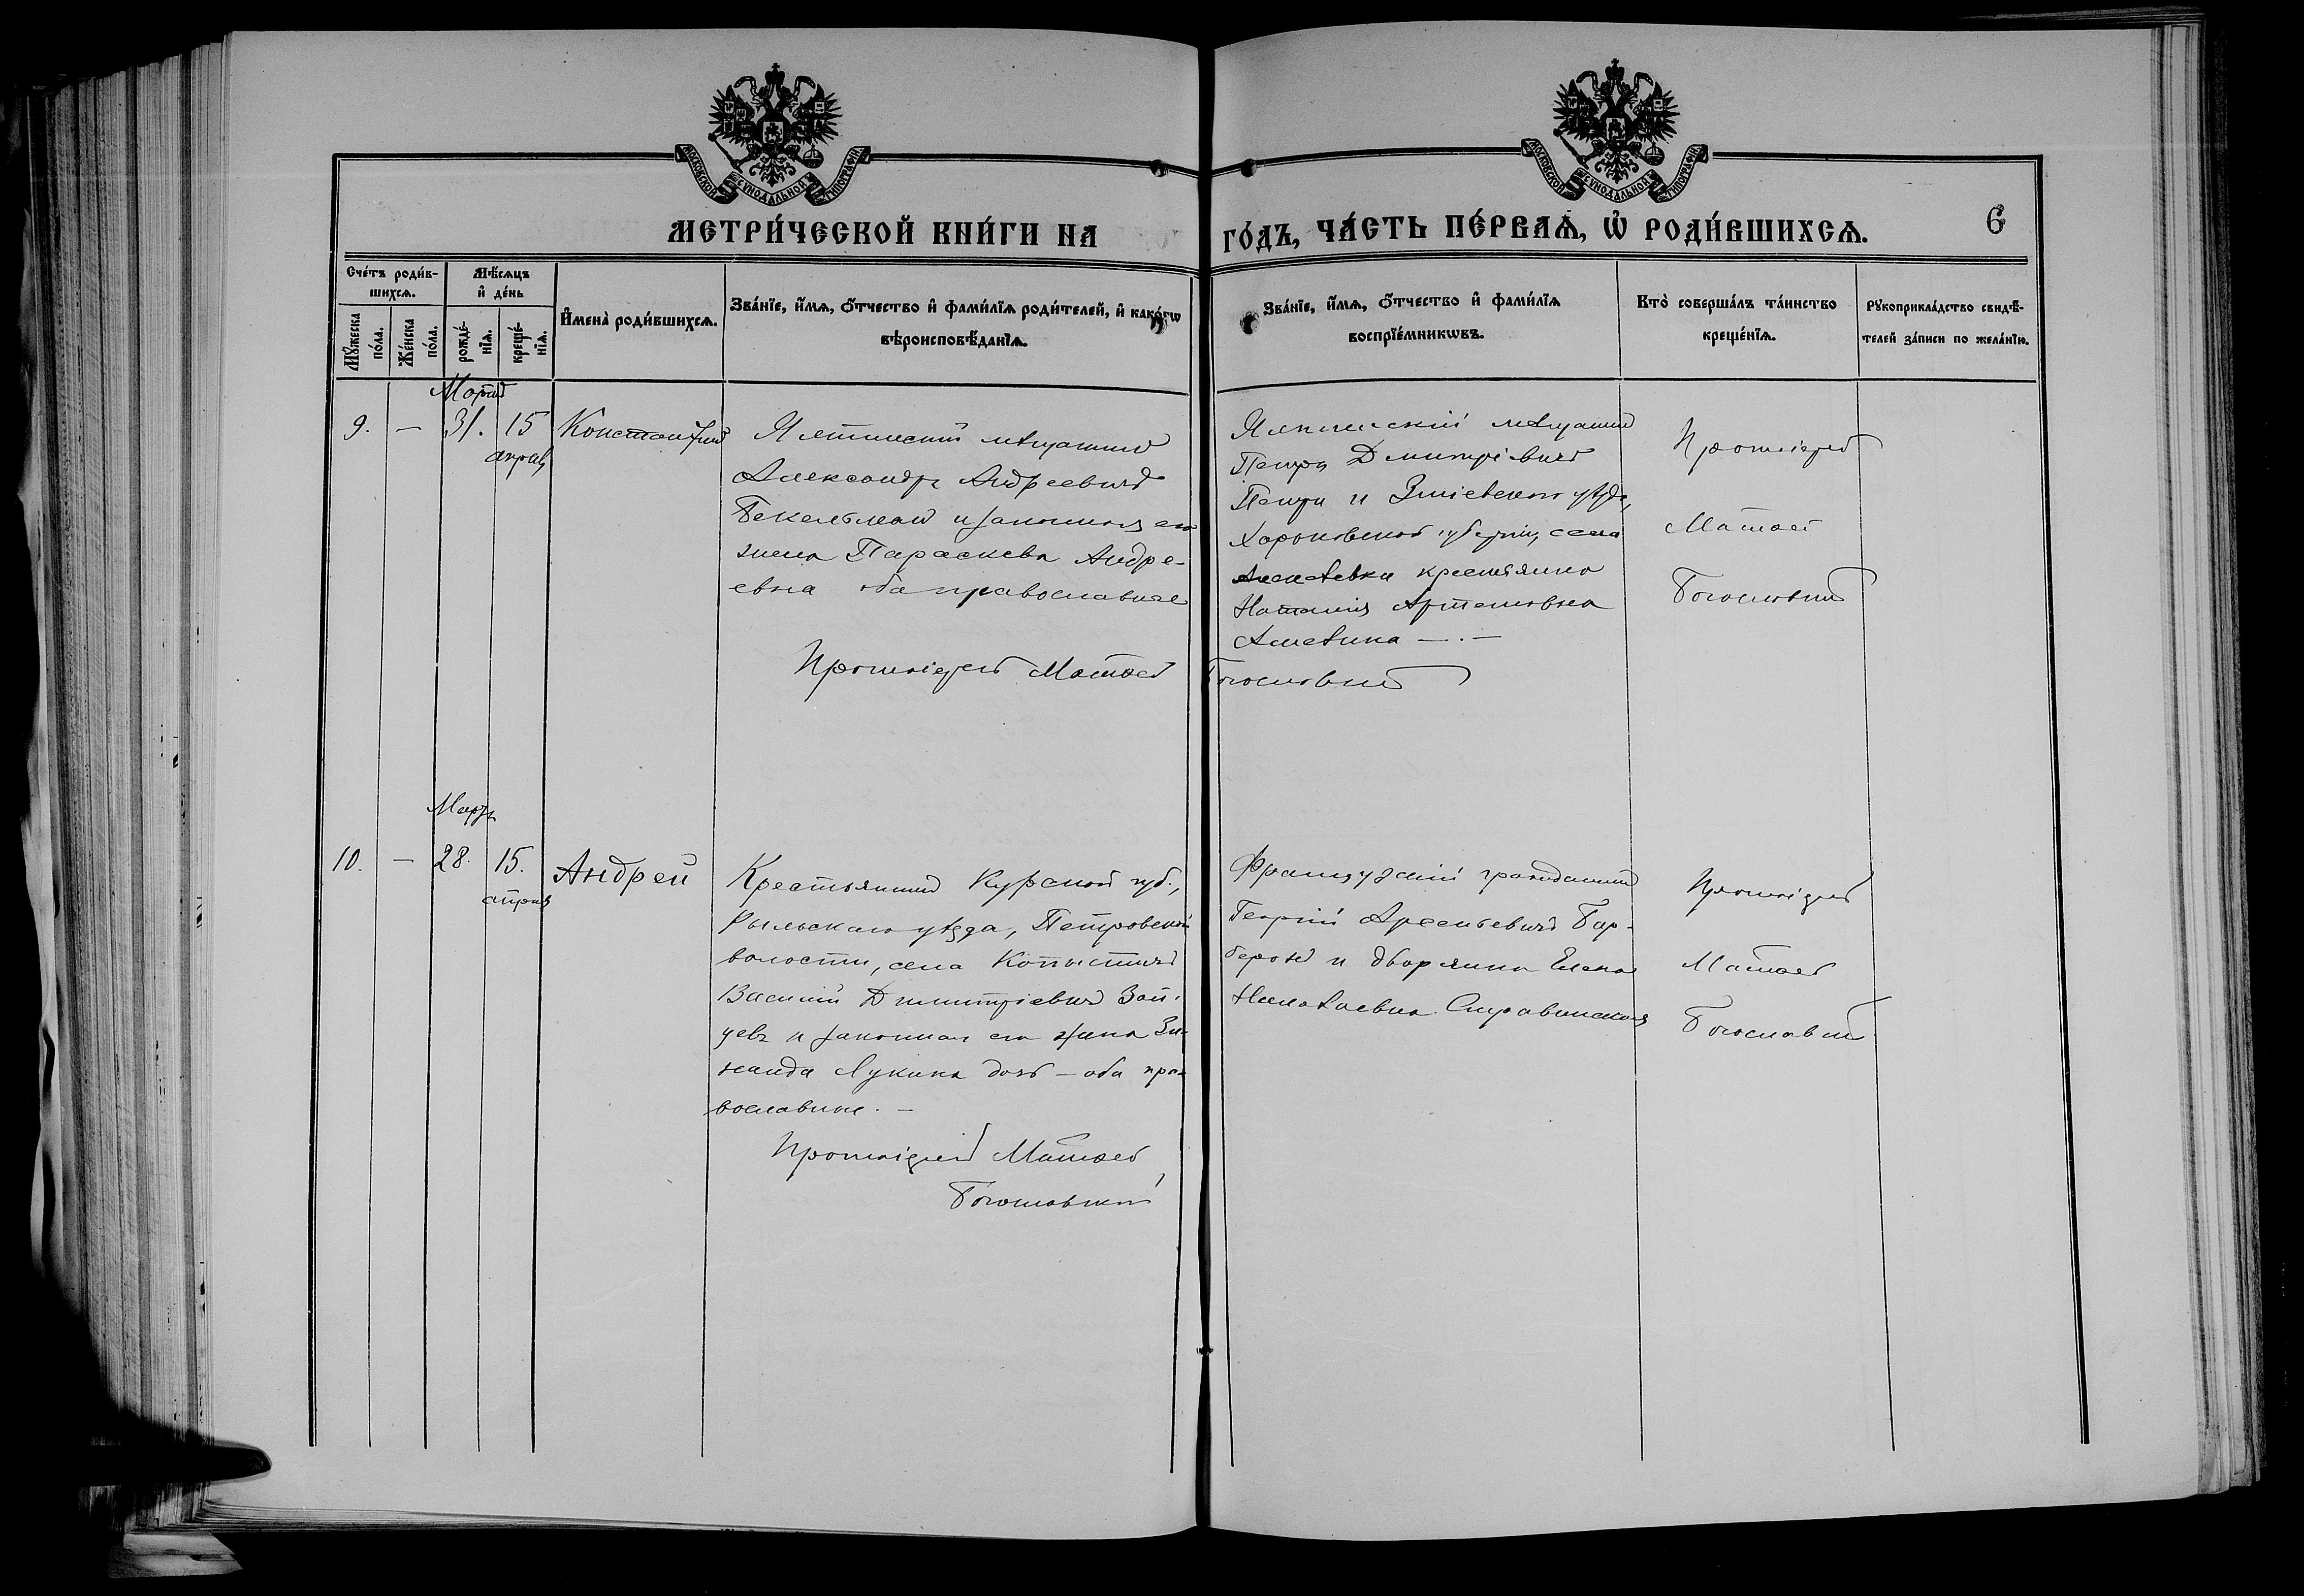 МОСКОВСКОЙ СѴНОДАЛЬНОЙ ТИПОГРАФІИ
МОСКОВСКОЙ СѴНОДАЛЬНОЙ ТИПОГРАФІИ
МЕТРИ́ЧЕСКОЙ КНИ́ГИ НА ГО́ДЪ, ЧА́СТЬ ПЕ́РВАѦ, Ѡ҆ РОДИ́ВШИХСѦ.
6
Сче́тъ роди́в-
шихсѧ.
Мѣ́сѧцъ
и҆ де́нь
Мꙋ́жеска
по́ла.
Же́нска
по́ла.
рожде́-
нїѧ.
креще́-
нїѧ.
И҆мена̀ роди́вшихсѧ.
Зва́нїе, и҆́мѧ, ѻ҆́тчество и҆ фами́лїѧ роди́телей, и҆ како́гѡ
вѣроисповѣ́данїѧ.
Зва́нїе, и҆́мѧ, ѻ҆́тчество и҆ фами́лїѧ
воспрїе́мникѡвъ.
Кто̀ соверша́лъ та́инство
креще́нїѧ.
Рꙋкоприкла́дство свидѣ́-
телей за́писи по жела́нїю.
Мартъ
9. — 31. 15 Константинъ
апрѣль
Ялтинскій мѣщанинъ
Александръ Андреевичъ
Бекельман и законная его
жена Параскева Андре-
евна оба православные
Протоіерей Матѳей Богословскій
Ялтинскій мѣщанинъ
Петръ Дмитріевичъ
и Зміевского уѣзда,
Харьковской губерніи, села
Алексѣевки крестьянка
Наталія Артемовна
— . —
Протоіерей
Матѳей
Богословскій
Мартъ
10. — 28. 15. Андрей
апрѣля
Крестьянинъ Курской губ.,
Рыльскаго уѣзда, Петровской
волости, села Копыстичъ
Василій Димитріевичъ Зай-
цевъ и законная его жена Зи-
наида Лукина дочь — оба пра-
вославные. —
Протоіерей Матѳей
Богословскій
Французскій гражданинъ
Георгій Арсеньевичъ Бар-
беронъ и дворянка Елена
Николаевна
Протоіерей
Матѳей
Богословскій